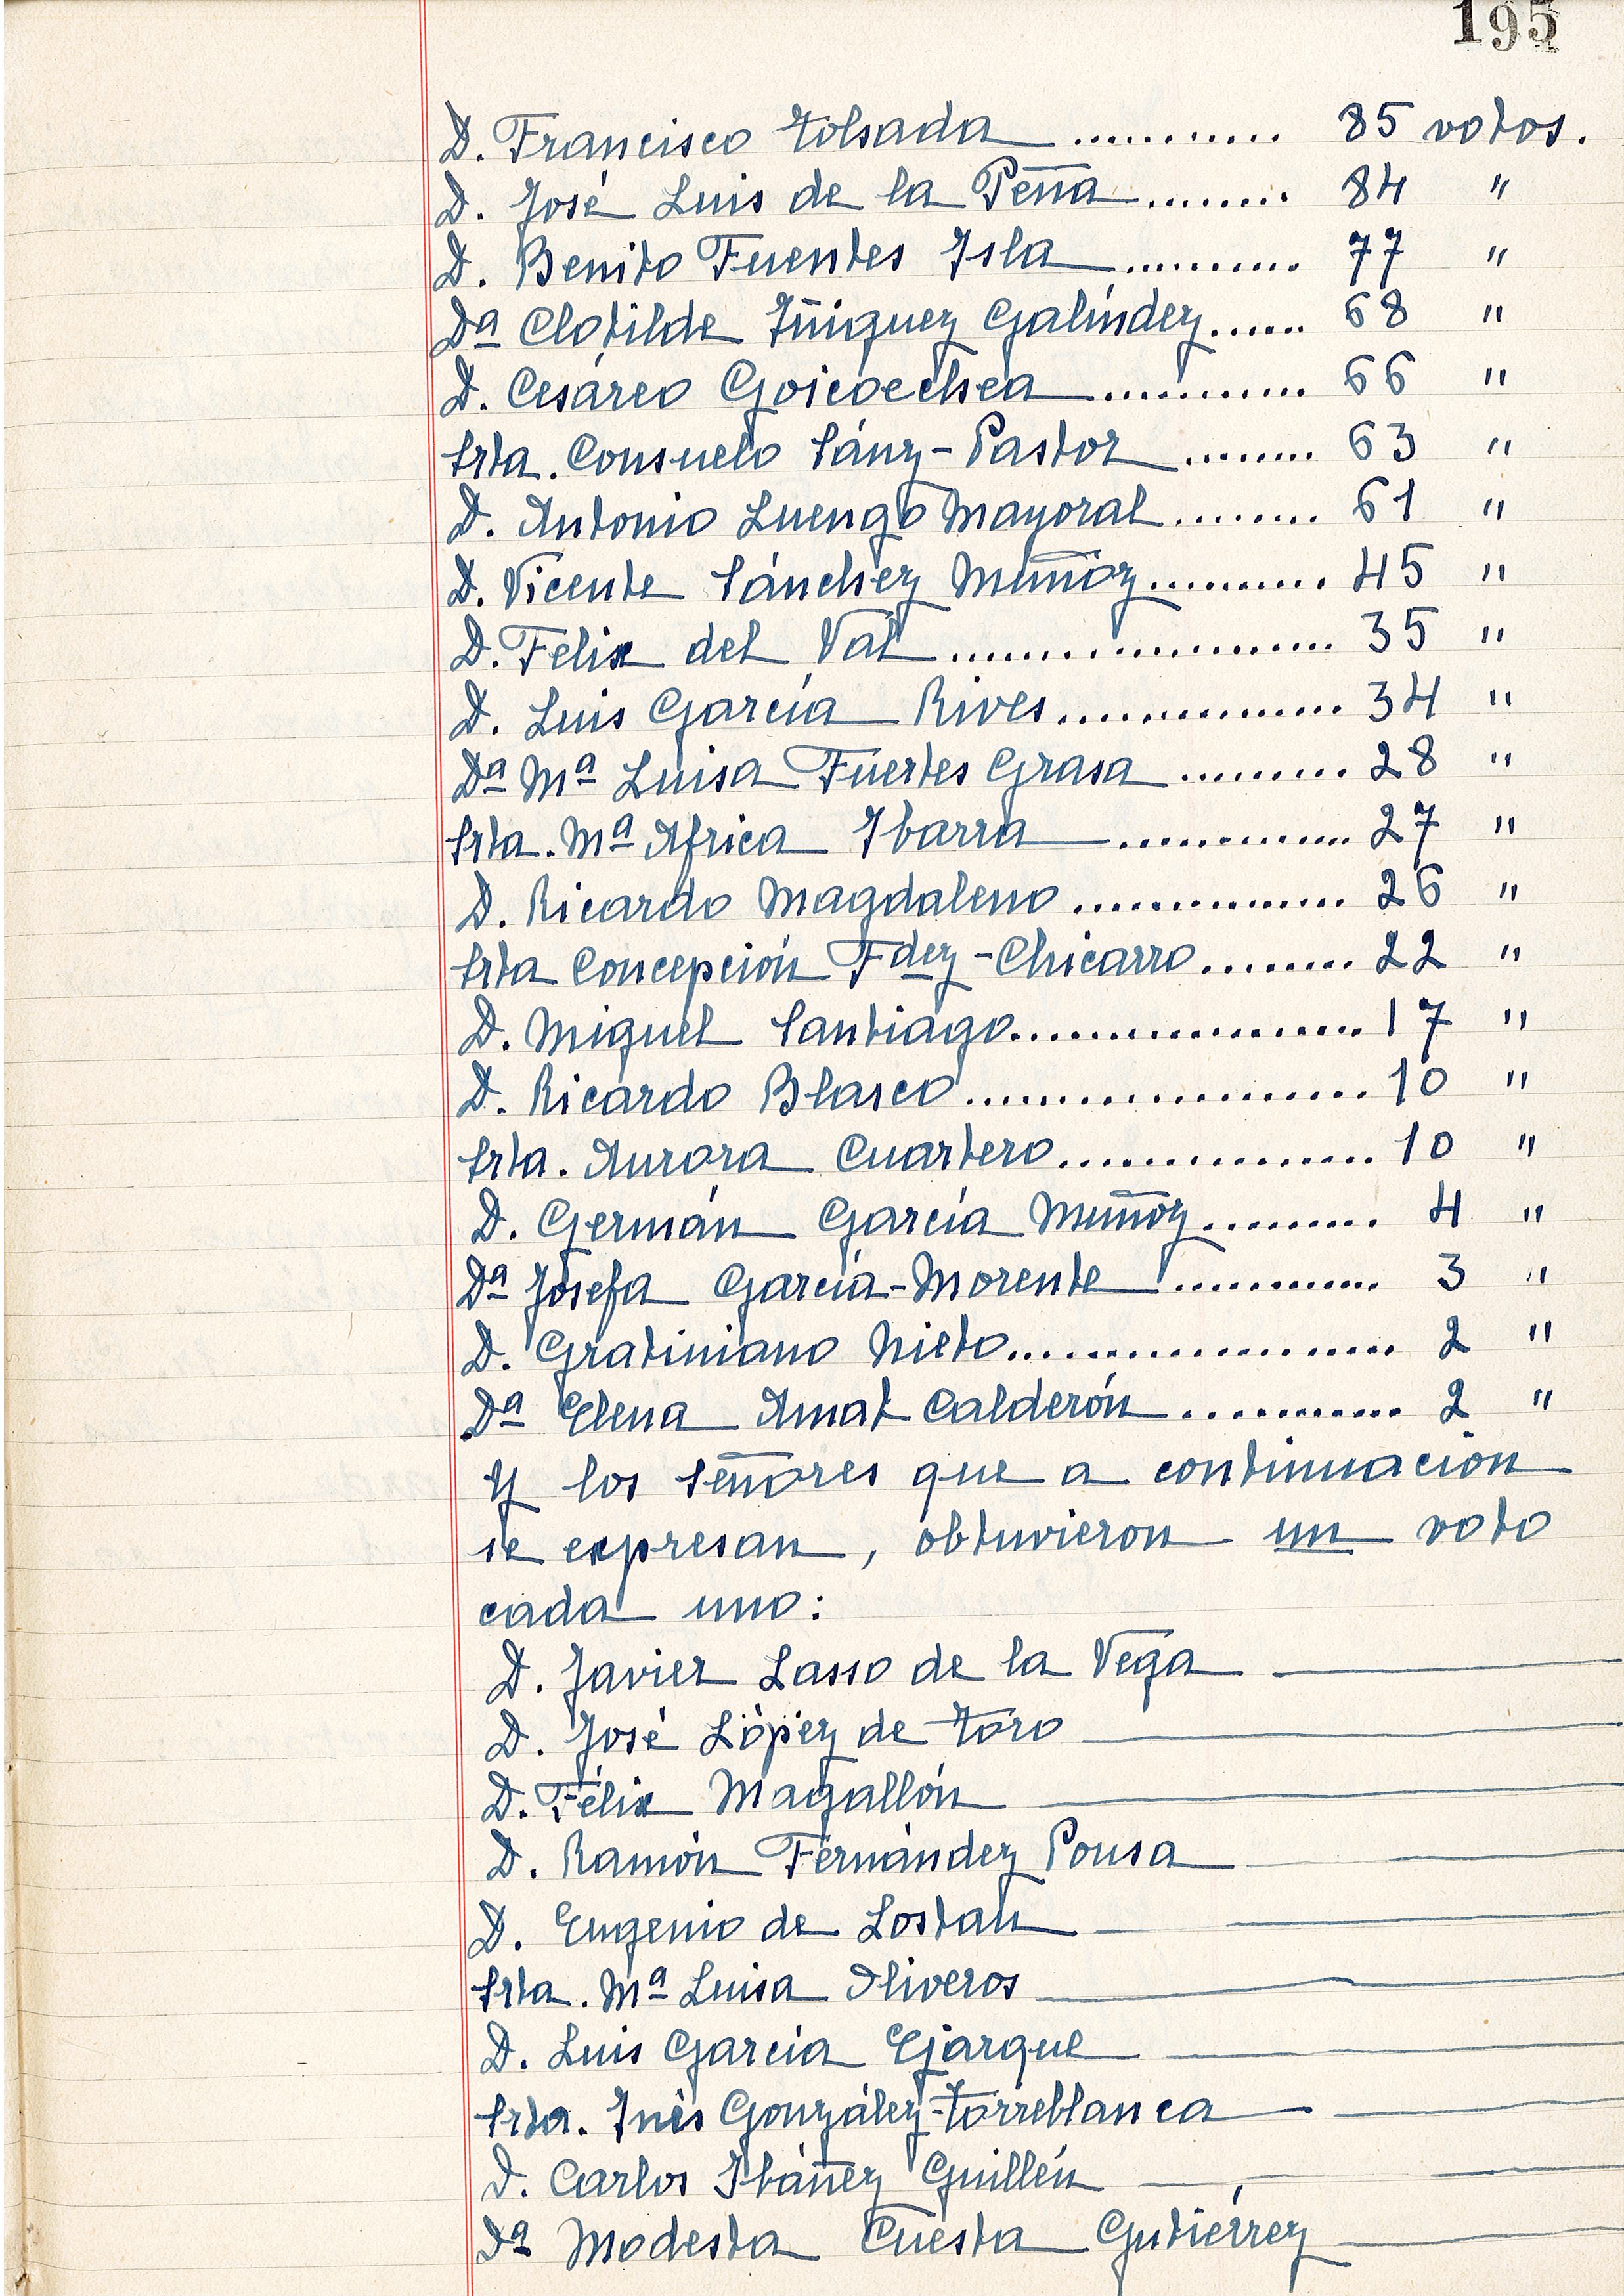 195
D. Francisco Tolsada ............ 85 votos.
D. José Luis de la Peña ........ 84 "
D. Benito Fuentes Isla .......... 77 "
Dª Clotilde Iñiguez Galíndez ...... 68 "
D. Cesáreo Goicoechea ............ 66 "
Srta. Consuelo Sánz-Pastor ........ 63 "
D. Antonio Luengo Mayoral ........ 61 "
D. Vicente Sánchez Muñoz .......... 45 "
D. Felix del Val ...................... 35 "
D. Luis García Rives ................ 34 "
Dª Mª Luisa Fuertes Grasa ......... 28 "
Srta. Mª Africa Ibarra .............. 27 "
D. Ricardo Magdaleno ................ 26 "
Srta Concepción Fdez-Chicarro ........ 22 "
D. Miguel Santiago .................... 17 "
D. Ricardo Blasco ...................... 10 "
Srta. Aurora Cuartero .................. 10 "
D. Germán García Muñoz ......... 4 "
Dª Josefa García-Morente ............ 3 "
D. Gratiniano Nieto .................... 2 "
Dª Elena Amat Calderón ............ 2 "
Y los señores que a continuación
se expresan, obtuvieron un voto
cada uno:
D. Javier Lasso de la Vega
D. José López de Toro
D. Félix Magallón
D. Ramón Fernández Pousa
D. Eugenio de Lostau
Srta. Mª Luisa Oliveros
D. Luis García Ejarque
Srta. Inés González-Torreblanca
D. Carlos Ibáñez Guillén
Dª Modesta Cuesta Gutiérrez